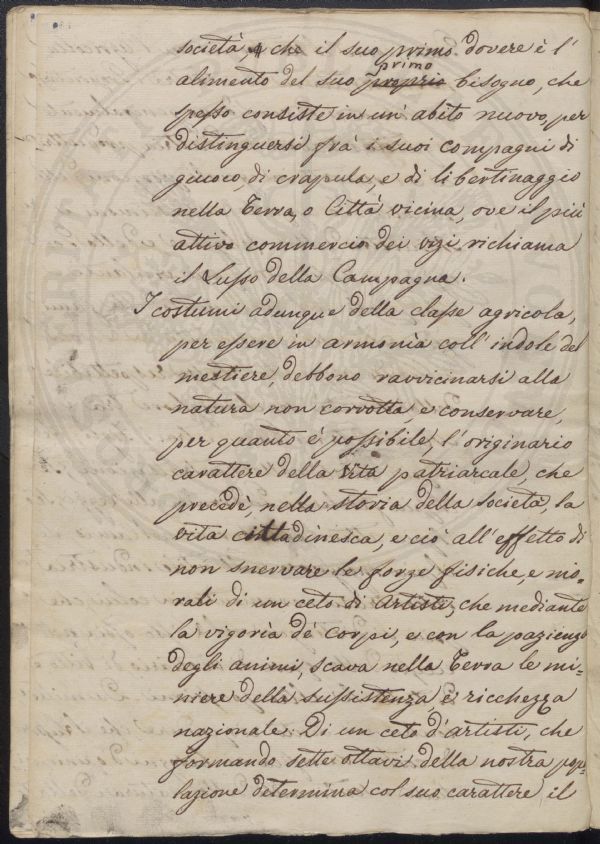 società, e che il suo primo dovere è l'
primo
alimento del suo proprio bisogno, che
spesso consiste in un' abito nuovo, per
distinguersi frà i suoi compagni di
giuoco, di crapula, e di libertinaggio
nella Terra, o Città vicina, ove il più
attivo commercio dei vizi richiama
il Lusso della Campagna.
I costumi adunque della classe agricola,
per essere in armonìa coll' indole del
mestiere, debbono ravvicinarsi alla
natura non corrotta, e conservare,
per quanto è possibile, l'originario
carattere della vita patriarcale, che
precedè, nella storia della società, la
vita cittadinesca, e ciò all'effetto di
non snervare le forze fisiche, e mo-
rali di un ceto di Artisti, che mediante
la vigorìa de' corpi, e con la pazienza
degli animi, scava nella Terra le mi-
niere della sussistenza, e ricchezza
nazionale. Di un ceto d'artisti, che
formando sette ottavi della nostra popo-
lazione determina col suo carattere il